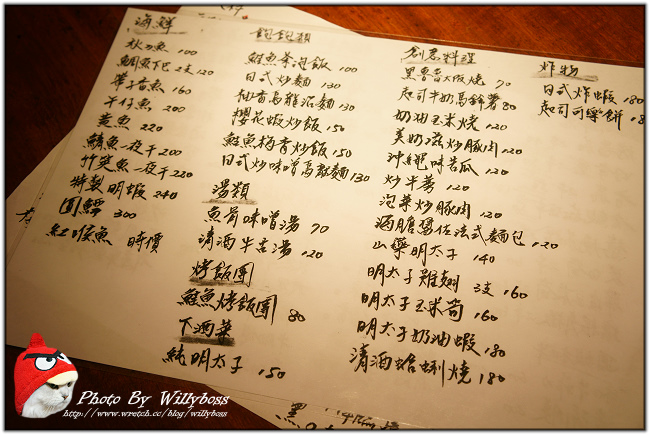 海鮮
秋刀魚 100
鯛魚下巴 2支 120
帶子香魚 160
午仔魚 200
黃魚 220
鯖魚一夜干 200
竹筴魚一夜干 220
特製明蝦 240
圓鱈 300
紅喉魚 時價
飽飽類
鮭魚茶泡飯 100
日式炒麵 130
柚香烏龍沾麵 130
櫻花蝦炒飯 150
鮭魚梅香炒飯 150
日式炒味噌烏龍麵 130
湯類
魚骨味噌湯 70
清酒牛舌湯 120
烤飯團
鮭魚烤飯團 80
下酒菜
純明太子 150
創意料理
黑魯肉大阪燒 70
起司牛奶馬鈴薯 80
奶油玉米燒 120
美奶滋炒豚肉 120
沖繩味苦瓜 120
炒牛蒡 120
泡菜炒豚肉 120
酒膽醬佐法式麵包 120
山藥明太子 140
明太子雞翅 2支 160
明太子玉米筍 160
明太子奶油蝦 180
清酒蛤蜊燒 180
炸物
日式炸蝦 180
起司可樂餅 18
Photo By Willyboss
http://www.wretch.cc/blog/willyboss